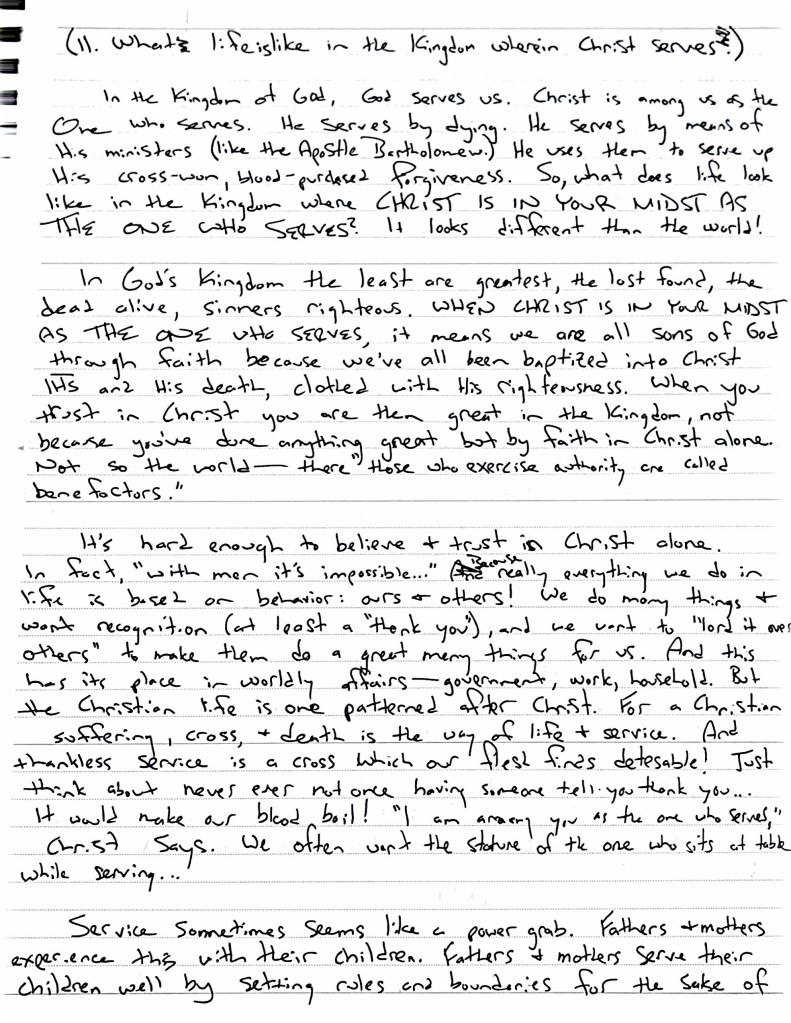 (II. What's life is like in the Kingdom wherein Christ serves?)
In the Kingdom of God, God serves us. Christ is among us as the
One who serves. He serves by dying. He serves by means of
His ministers (like the Apostle Bartholomew.) He uses them to serve up
His cross-won, blood-purchased forgiveness. So, what does life look
like in the Kingdom where CHRIST IS IN YOUR MIDST AS
THE ONE WHO SERVES? It looks different than the world!
In God's Kingdom the least are greatest, the lost found, the
dead alive, sinners righteous. WHEN CHRIST IS IN YOUR MIDST
AS THE ONE WHO SERVES, it means we are all sons of God
through faith because we've all been baptized into Christ
IHS and His death, clothed with His righteousness. When you
trust in Christ you are then great in the Kingdom, not
because you've done anything great but by faith in Christ alone.
Not so the world — there "those who exercise authority are called
benefactors."
It's hard enough to believe + trust in Christ alone.
In fact, "with men it's impossible..." Because really everything we do in
life is based on behavior: ours + others! We do many things +
want recognition (at least a "thank you"), and we want to "lord it over
others" to make them do a great many things for us. And this
has its place in worldly affairs — government, work, household. But
the Christian life is one patterned after Christ. For a Christian
suffering, cross, + death is the way of life + service. And
thankless service is a cross which our flesh finds detesable! Just
think about never ever not once having someone tell you thank you...
It would make our blood boil! "I am among you as the one who serves,"
Christ says. We often want the stature of the one who sits at table
while serving...
Service sometimes seems like a power grab. Fathers + mothers
experience this with their children. Fathers + mothers serve their
children well by setting rules and boundaries for the sake of